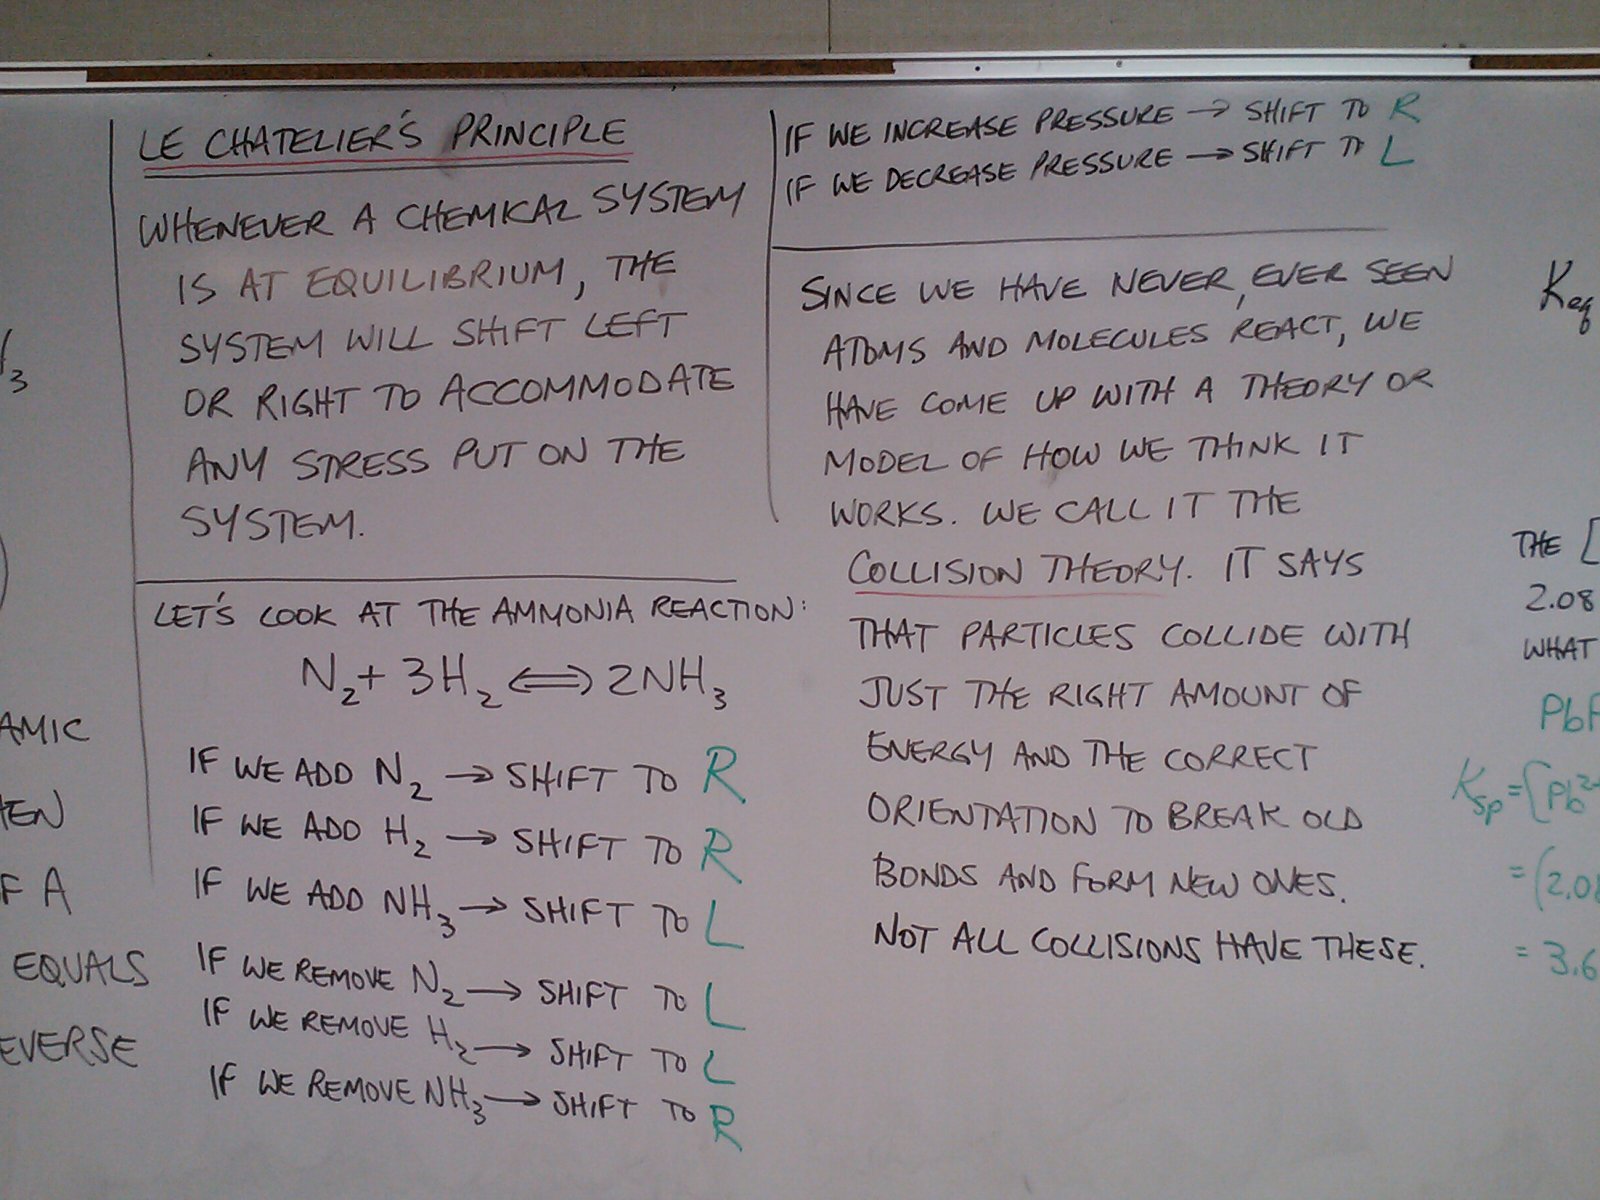 LE CHATELIER'S PRINCIPLE
WHENEVER A CHEMICAL SYSTEM
IS AT EQUILIBRIUM, THE
SYSTEM WILL SHIFT LEFT
OR RIGHT TO ACCOMMODATE
ANY STRESS PUT ON THE
SYSTEM.
LET'S LOOK AT THE AMMONIA REACTION:
N₂ + 3H₂ ⇔ 2NH₃
IF WE ADD N₂ → SHIFT TO R
IF WE ADD H₂ → SHIFT TO R
IF WE ADD NH₃ → SHIFT TO L
IF WE REMOVE N₂ → SHIFT TO L
IF WE REMOVE H₂ → SHIFT TO L
IF WE REMOVE NH₃ → SHIFT TO R
IF WE INCREASE PRESSURE → SHIFT TO R
IF WE DECREASE PRESSURE → SHIFT TO L
SINCE WE HAVE NEVER, EVER SEEN
ATOMS AND MOLECULES REACT, WE
HAVE COME UP WITH A THEORY OR
MODEL OF HOW WE THINK IT
WORKS. WE CALL IT THE
COLLISION THEORY. IT SAYS
THAT PARTICLES COLLIDE WITH
JUST THE RIGHT AMOUNT OF
ENERGY AND THE CORRECT
ORIENTATION TO BREAK OLD
BONDS AND FORM NEW ONES.
NOT ALL COLLISIONS HAVE THESE.
3
AMIC
EN
F A
EQUALS
EVERSE
Keq
THE [
2.08
WHAT
PbF
Ksp = [Pb²
= (2.08
= 3.6